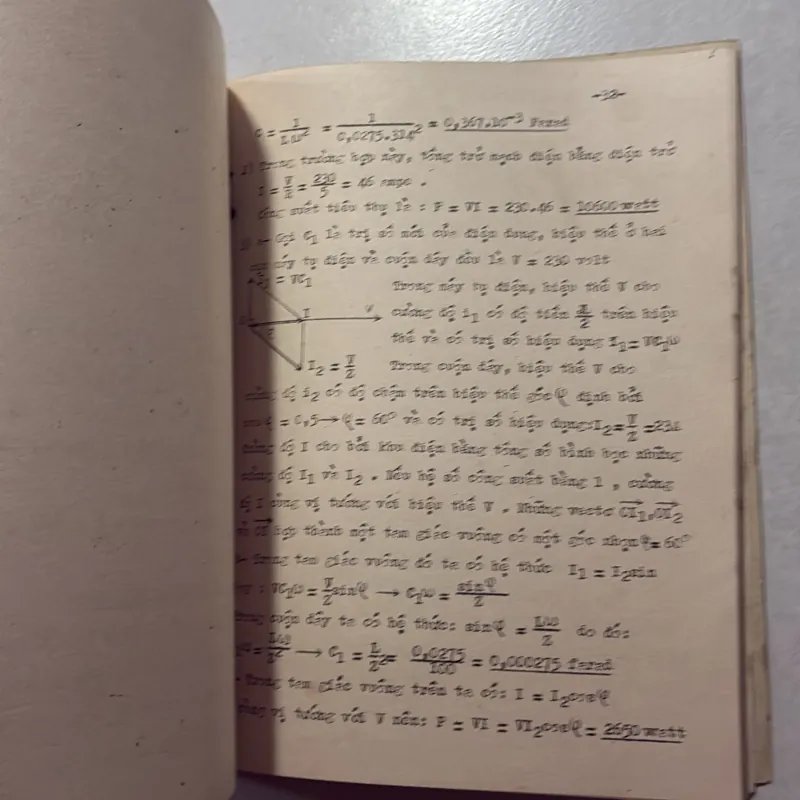 -32-
C = 1/Lω² = 1/0,0275.314² = 0,367.10⁻³ Farad
2) Trong trường hợp này, tổng trở mạch điện bằng điện trở
I = V/Z = 230/5 = 46 ampe .
Công suất tiêu thụ là : P = VI = 230.46 = 10600 watt
3) a- Gọi C₁ là trị số mới của điện dung, hiệu thế ở hai
máy tụ điện và cuộn dây đều là V = 230 volt
I₁ = VC₁ Trong máy tụ điện, hiệu thế V cho
I V cường độ i₁ có độ tiến π/2 trên hiệu
φ thế và có trị số hiệu dụng I₁= VC₁ω
I₂ = V/Z Trong cuộn dây, hiệu thế V cho
cường độ i₂ có độ chậm trên hiệu thế góc φ định bởi
cos φ = 0,5 → φ = 60° và có trị số hiệu dụng:I₂= V/Z =23A
cường độ I cho bởi khu điện bằng tổng số hình học những
cường độ I₁ và I₂ . Nếu hệ số công suất bằng 1 , cường
độ I cùng vị tướng với hiệu thế V . Những vectơ OI₁,OI₂
và OI hợp thành một tam giác vuông có một góc nhọn φ= 60°
- Trong tam giác vuông đó ta có hệ thức I₁ = I₂sin
: VC₁ω = V/Z sinφ → C₁ω = sinφ/Z
Trong cuộn dây ta có hệ thức: sinφ = Lω/Z do đó:
C₁ω = Lω/Z² → C₁ = L/Z² = 0,0275/100 = 0,000275 farad
- Trong tam giác vuông trên ta có: I = I₂cosφ
cùng vị tướng với V nên: P = VI = VI₂cosφ = 2650 watt